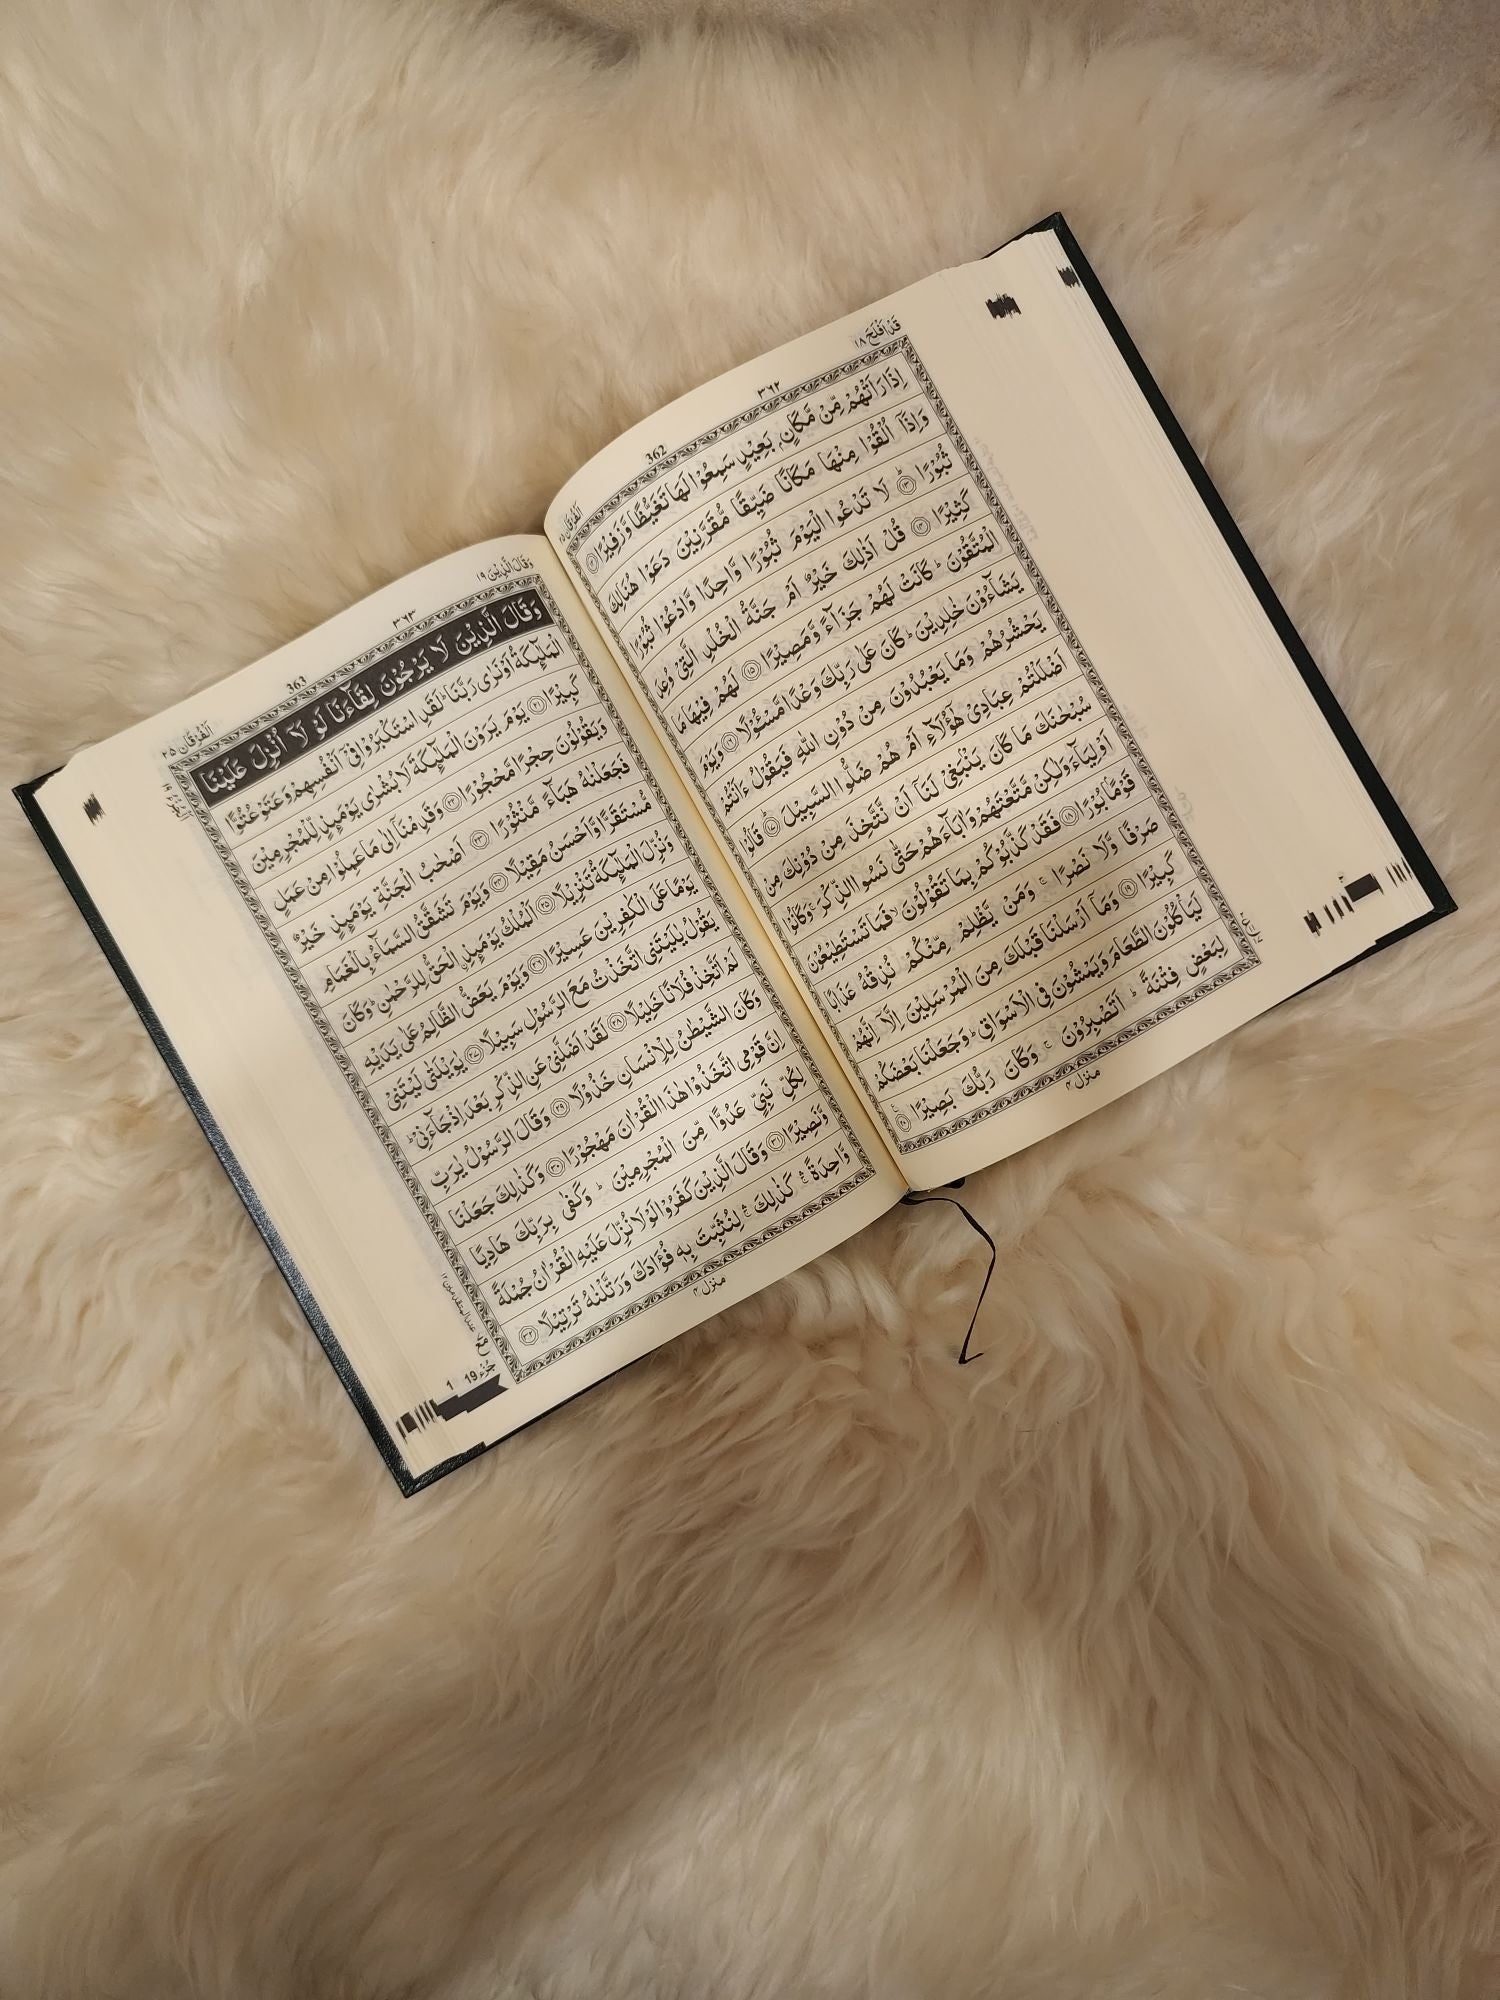 قَدۡ اَفۡلَحَ ١٨
٣٦٢
362
اَلۡفُرۡقَان ٢٥
اِذَا رَاَتۡهُمۡ مِّنۡ مَّكَانٍۭ بَعِيۡدٍ سَمِعُوۡا لَهَا تَغَيُّظًا وَّزَفِيۡرًا ۝١٢
وَاِذَاۤ اُلۡقُوۡا مِنۡهَا مَكَانًا ضَيِّقًا مُّقَرَّنِيۡنَ دَعَوۡا هُنَالِكَ
ثُبُوۡرًا ؕ ۝١٣ لَا تَدۡعُوا الۡيَوۡمَ ثُبُوۡرًا وَّاحِدًا وَّادۡعُوۡا ثُبُوۡرًا
كَثِيۡرًا ۝١٤ قُلۡ اَذٰلِكَ خَيۡرٌ اَمۡ جَنَّةُ الۡخُلۡدِ الَّتِىۡ وُعِدَ
الۡمُتَّقُوۡنَ ؕ كَانَتۡ لَهُمۡ جَزَآءً وَّمَصِيۡرًا ۝١٥ لَهُمۡ فِيۡهَا مَا
يَشَآءُوۡنَ خٰلِدِيۡنَ ؕ كَانَ عَلٰى رَبِّكَ وَعۡدًا مَّسۡـُٔوۡلًا ۝١٦ وَيَوۡمَ
يَحۡشُرُهُمۡ وَمَا يَعۡبُدُوۡنَ مِنۡ دُوۡنِ اللّٰهِ فَيَقُوۡلُ ءَاَنۡتُمۡ
اَضۡلَلۡتُمۡ عِبَادِىۡ هٰٓؤُلَآءِ اَمۡ هُمۡ ضَلُّوا السَّبِيۡلَ ؕ ۝١٧ قَالُوۡا
سُبۡحٰنَكَ مَا كَانَ يَنۡۢبَغِىۡ لَنَاۤ اَنۡ نَّتَّخِذَ مِنۡ دُوۡنِكَ مِنۡ
اَوۡلِيَآءَ وَلٰكِنۡ مَّتَّعۡتَهُمۡ وَاٰبَآءَهُمۡ حَتّٰى نَسُوا الذِّكۡرَ ۚ وَكَانُوۡا
قَوۡمًۢا بُوۡرًا ۝١٨ فَقَدۡ كَذَّبُوۡكُمۡ بِمَا تَقُوۡلُوۡنَ ۙ فَمَا تَسۡتَطِيۡعُوۡنَ
صَرۡفًا وَّلَا نَصۡرًا ۚ وَمَنۡ يَّظۡلِمۡ مِّنۡكُمۡ نُذِقۡهُ عَذَابًا
كَبِيۡرًا ۝١٩ وَمَاۤ اَرۡسَلۡنَا قَبۡلَكَ مِنَ الۡمُرۡسَلِيۡنَ اِلَّاۤ اِنَّهُمۡ
لَيَاۡكُلُوۡنَ الطَّعَامَ وَيَمۡشُوۡنَ فِى الۡاَسۡوَاقِ ؕ وَجَعَلۡنَا بَعۡضَكُمۡ
لِبَعۡضٍ فِتۡنَةً ؕ اَتَصۡبِرُوۡنَ ۚ وَكَانَ رَبُّكَ بَصِيۡرًا ۝٢٠
منزل ٤
وَقَالَ الَّذِيۡنَ ١٩
٣٦٣
363
اَلۡفُرۡقَان ٢٥
اَلۡجُزۡءُ ١٩
وَقَالَ الَّذِيۡنَ لَا يَرۡجُوۡنَ لِقَآءَنَا لَوۡلَاۤ اُنۡزِلَ عَلَيۡنَا
الۡمَلٰٓٮِٕكَةُ اَوۡ نَرٰى رَبَّنَا ؕ لَقَدِ اسۡتَكۡبَرُوۡا فِىۡۤ اَنۡفُسِهِمۡ وَعَتَوۡ عُتُوًّا
كَبِيۡرًا ۝٢١ يَوۡمَ يَرَوۡنَ الۡمَلٰٓٮِٕكَةَ لَا بُشۡرٰى يَوۡمَٮِٕذٍ لِّلۡمُجۡرِمِيۡنَ
وَيَقُوۡلُوۡنَ حِجۡرًا مَّحۡجُوۡرًا ۝٢٢ وَقَدِمۡنَاۤ اِلٰى مَا عَمِلُوۡا مِنۡ عَمَلٍ
فَجَعَلۡنٰهُ هَبَآءً مَّنۡثُوۡرًا ۝٢٣ اَصۡحٰبُ الۡجَنَّةِ يَوۡمَٮِٕذٍ خَيۡرٌ
مُّسۡتَقَرًّا وَّاَحۡسَنُ مَقِيۡلًا ۝٢٤ وَيَوۡمَ تَشَقَّقُ السَّمَآءُ بِالۡغَمَامِ
وَنُزِّلَ الۡمَلٰٓٮِٕكَةُ تَنۡزِيۡلًا ۝٢٥ اَلۡمُلۡكُ يَوۡمَٮِٕذِ اۨلۡحَـقُّ لِلرَّحۡمٰنِ ؕ وَكَانَ
يَوۡمًا عَلَى الۡكٰفِرِيۡنَ عَسِيۡرًا ۝٢٦ وَيَوۡمَ يَعَضُّ الظَّالِمُ عَلٰى يَدَيۡهِ
يَقُوۡلُ يٰلَيۡتَنِى اتَّخَذۡتُ مَعَ الرَّسُوۡلِ سَبِيۡلًا ۝٢٧ يٰوَيۡلَتٰى لَيۡتَنِىۡ
لَمۡ اَتَّخِذۡ فُلَانًا خَلِيۡلًا ۝٢٨ لَقَدۡ اَضَلَّنِىۡ عَنِ الذِّكۡرِ بَعۡدَ اِذۡ جَآءَنِىۡ ؕ
وَكَانَ الشَّيۡطٰنُ لِلۡاِنۡسَانِ خَذُوۡلًا ۝٢٩ وَقَالَ الرَّسُوۡلُ يٰرَبِّ
اِنَّ قَوۡمِى اتَّخَذُوۡا هٰذَا الۡقُرۡاٰنَ مَهۡجُوۡرًا ۝٣٠ وَكَذٰلِكَ جَعَلۡنَا
لِكُلِّ نَبِىٍّ عَدُوًّا مِّنَ الۡمُجۡرِمِيۡنَ ؕ وَكَفٰى بِرَبِّكَ هَادِيًا
وَّنَصِيۡرًا ۝٣١ وَقَالَ الَّذِيۡنَ كَفَرُوۡا لَوۡلَا نُزِّلَ عَلَيۡهِ الۡقُرۡاٰنُ جُمۡلَةً
وَّاحِدَةً ۛۚ كَذٰلِكَ ۛۚ لِنُثَبِّتَ بِهٖ فُؤَادَكَ وَرَتَّلۡنٰهُ تَرۡتِيۡلًا ۝٣٢
منزل ٤
جُزْء 19
1